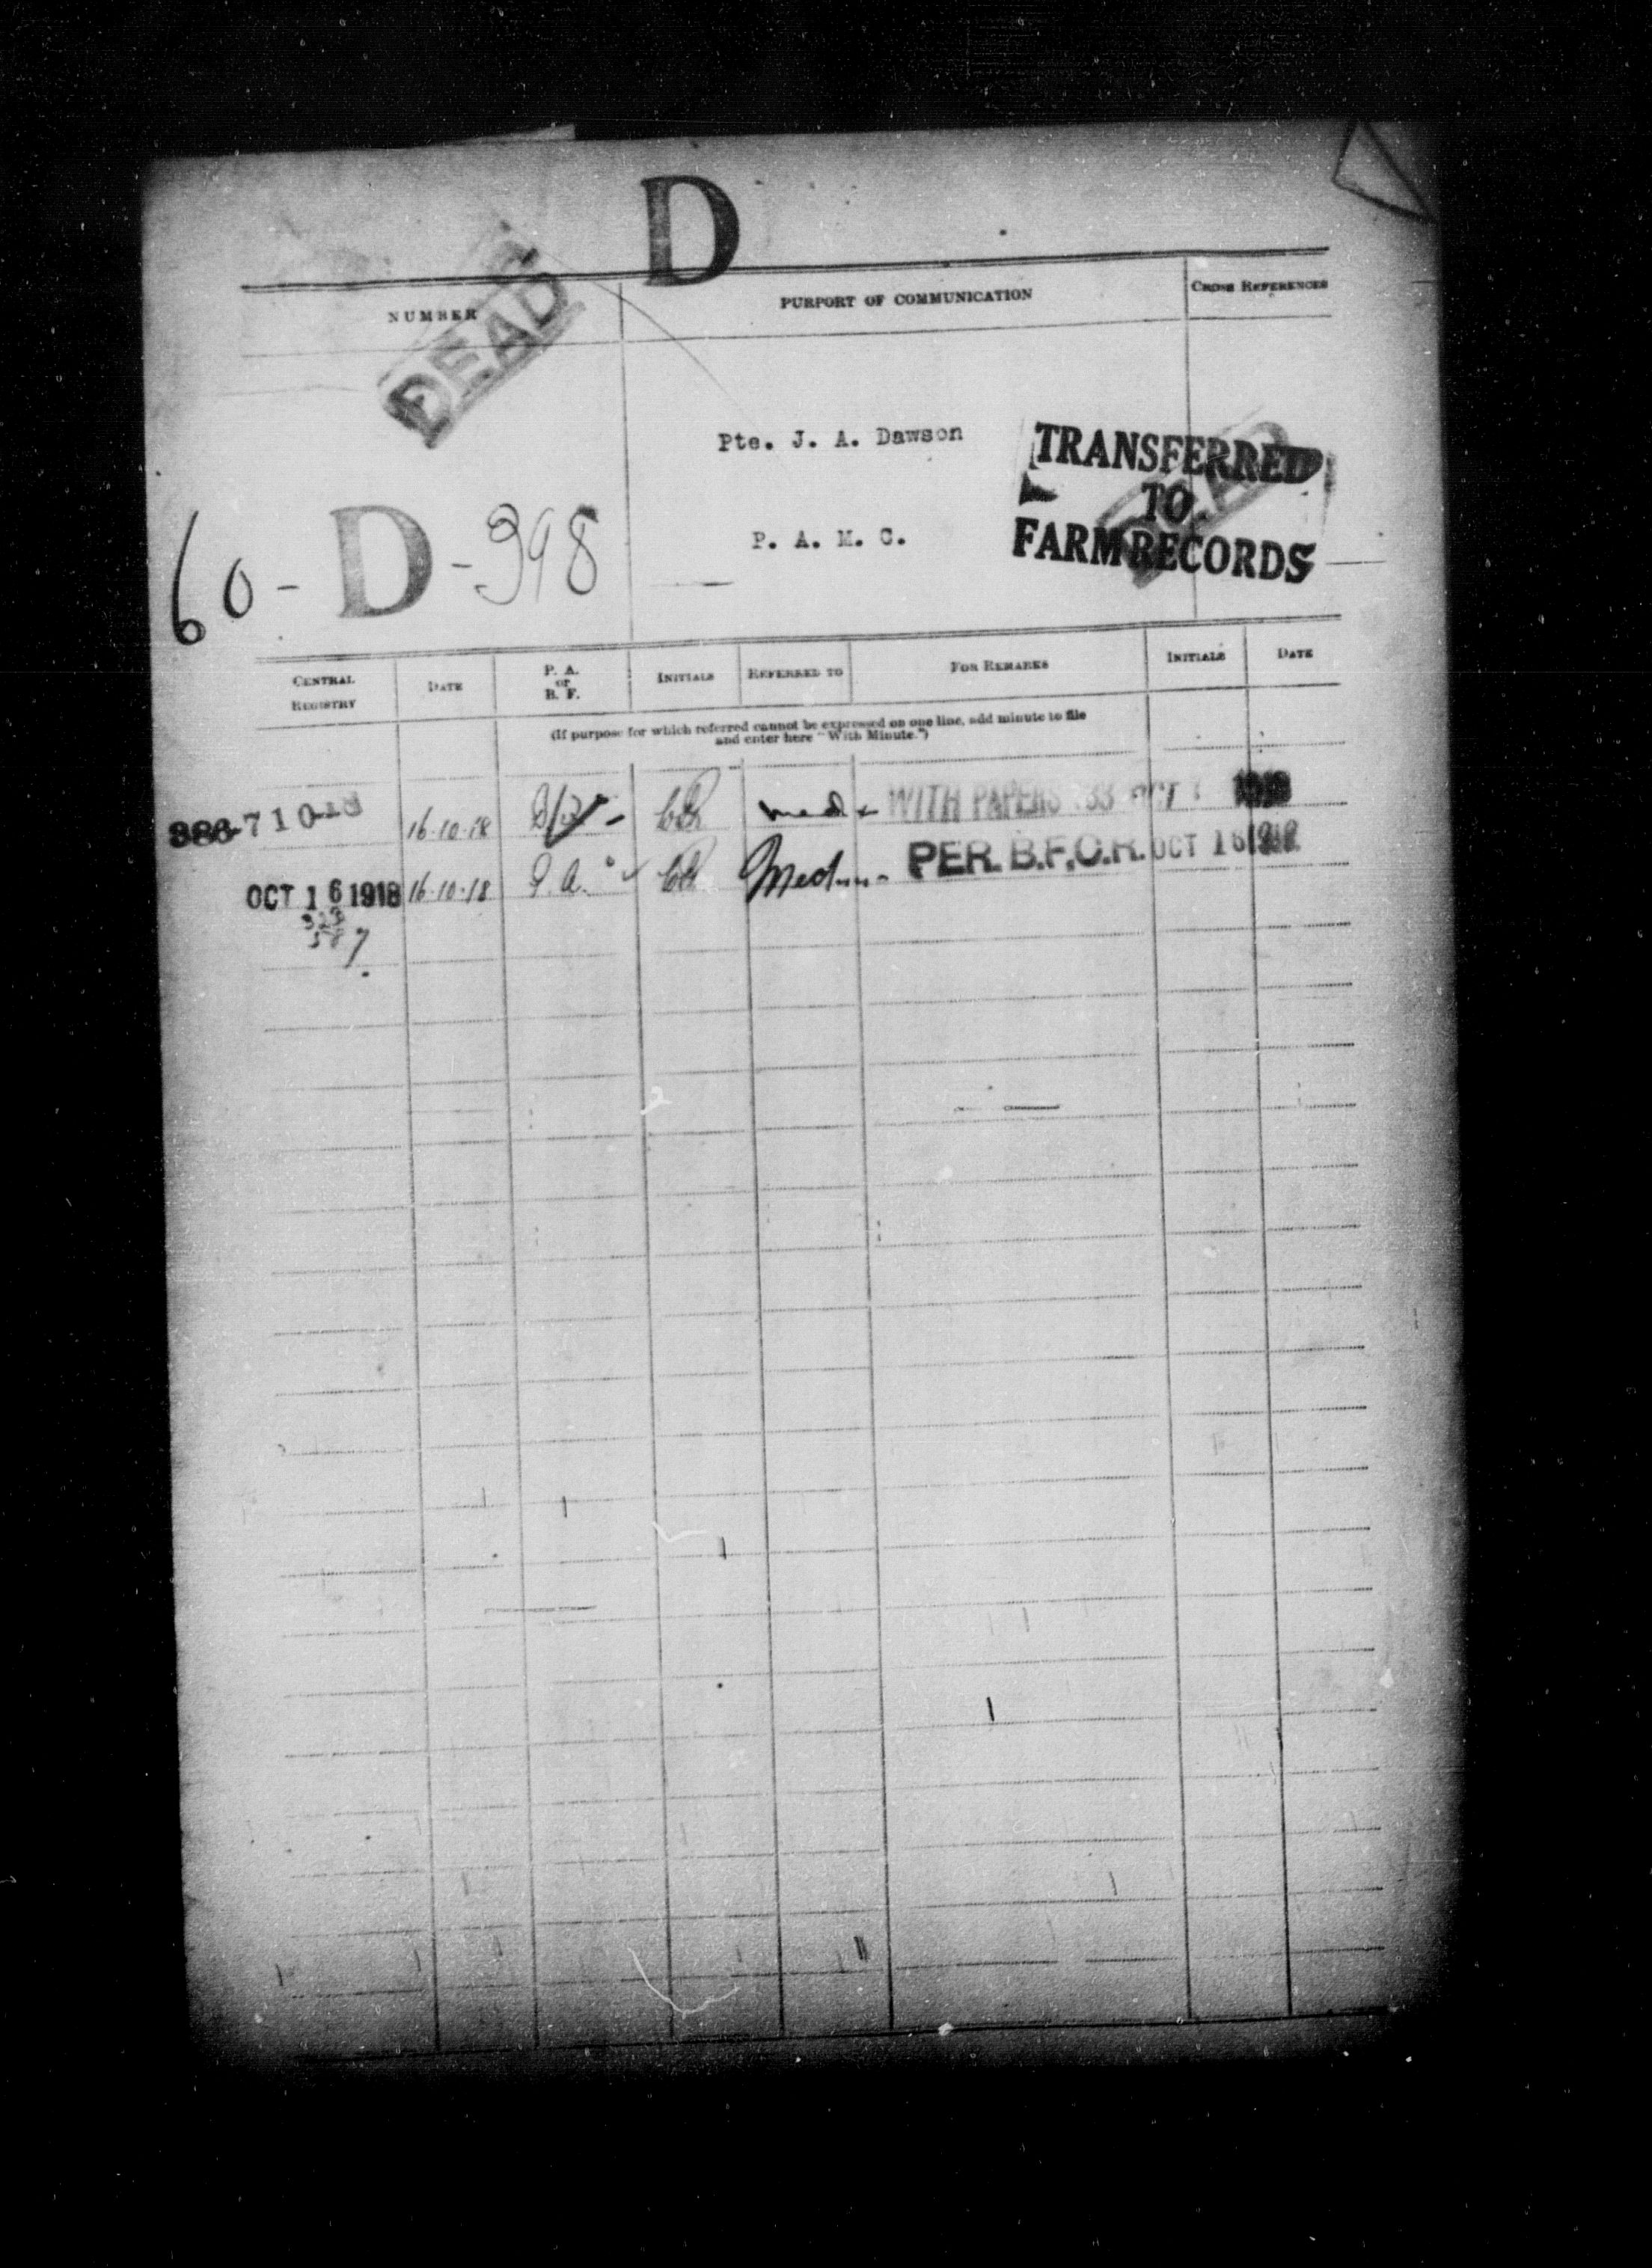 D
NUMBER
PURPORT OF COMMUNICATION
CROSS REFERENCES
DEAD
Pte. J. A. Dawson
TRANSFERRED
TO
FARM RECORDS
P. A. M. C.
60 - D - 398
CENTRAL REGISTRY
DATE
P. A. or B. F.
INITIALS
REFERRED TO
FOR REMARKS
INITIALS
DATE
(If purpose for which referred cannot be expressed on one line, add minute to file
and enter here "With Minute.")
386-710-18 16-10-18 med WITH PAPERS 33 OCT 1918
OCT 16 1918 16-10-18 P.A. PER. B.F.O.R. OCT 16 1918